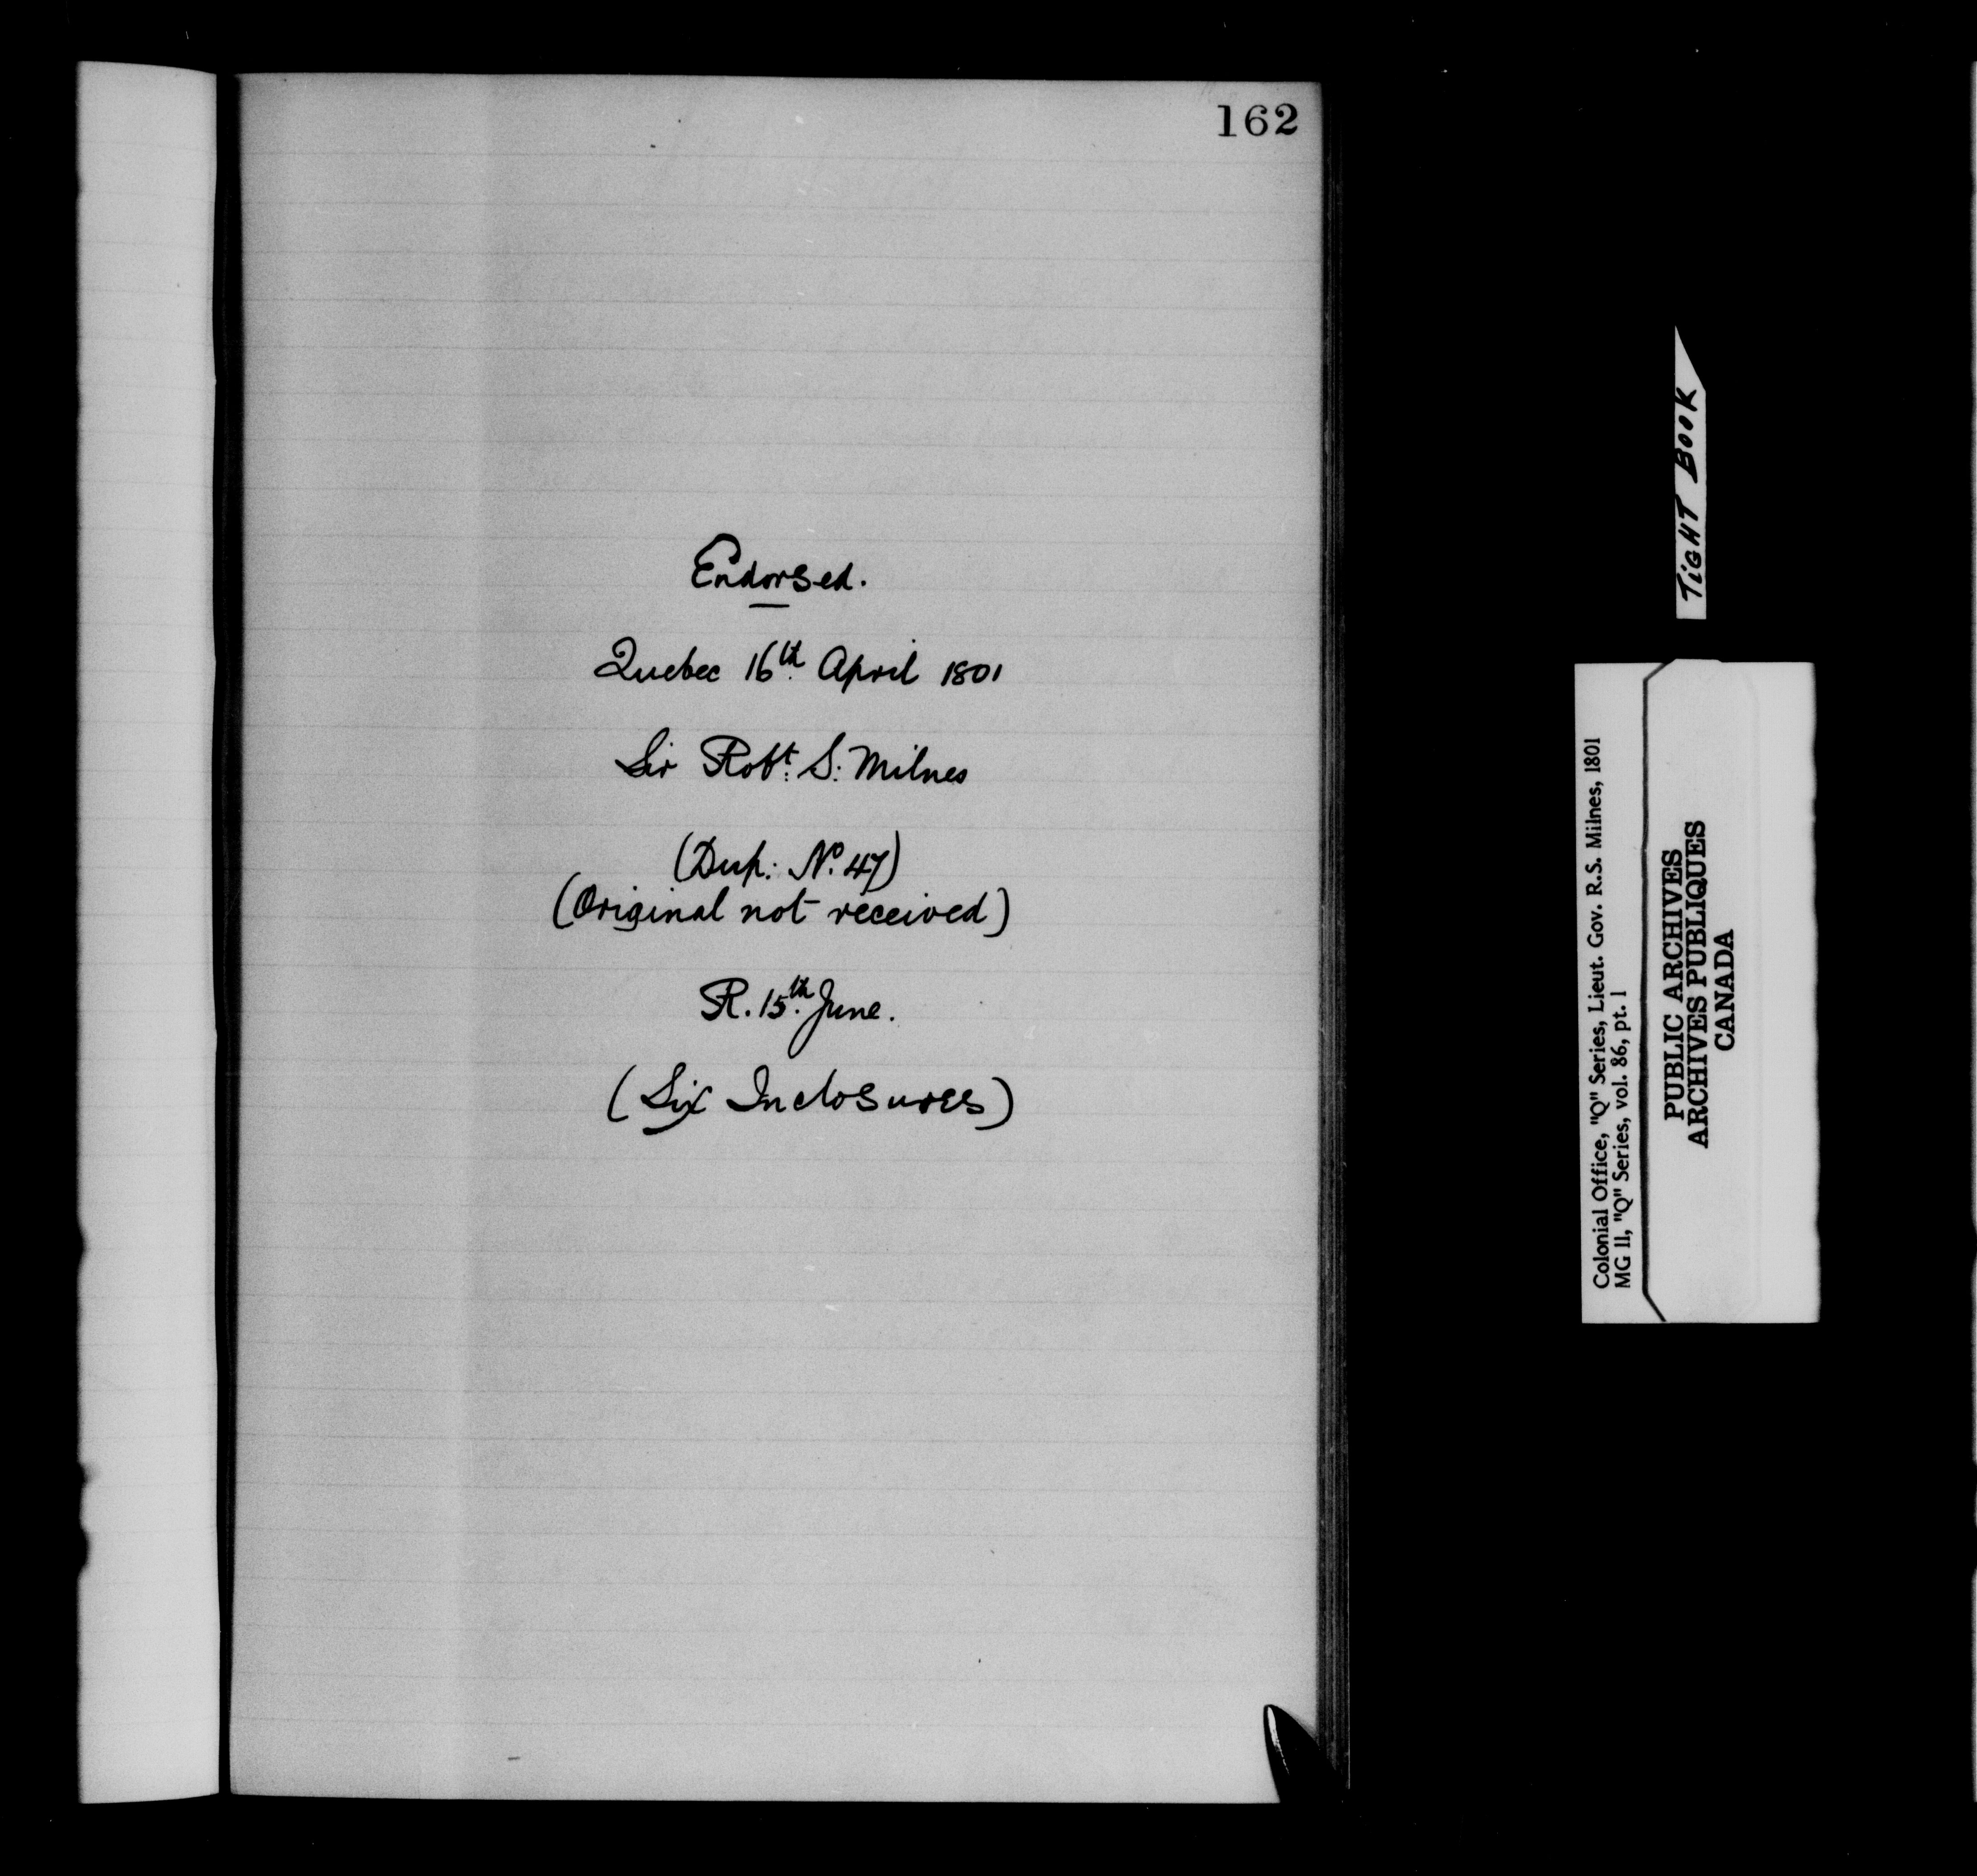 162
Endorsed.
Quebec 16th April 1801
Sir Robt: S: Milnes
(Dup: No. 47)
(Original not received)
R. 15th June.
(Six Inclosures)
TIGHT BOOK
Colonial Office, "Q" Series, Lieut. Gov. R.S. Milnes, 1801
MG 11, "Q" Series, vol. 86, pt. 1
PUBLIC ARCHIVES
ARCHIVES PUBLIQUES
CANADA